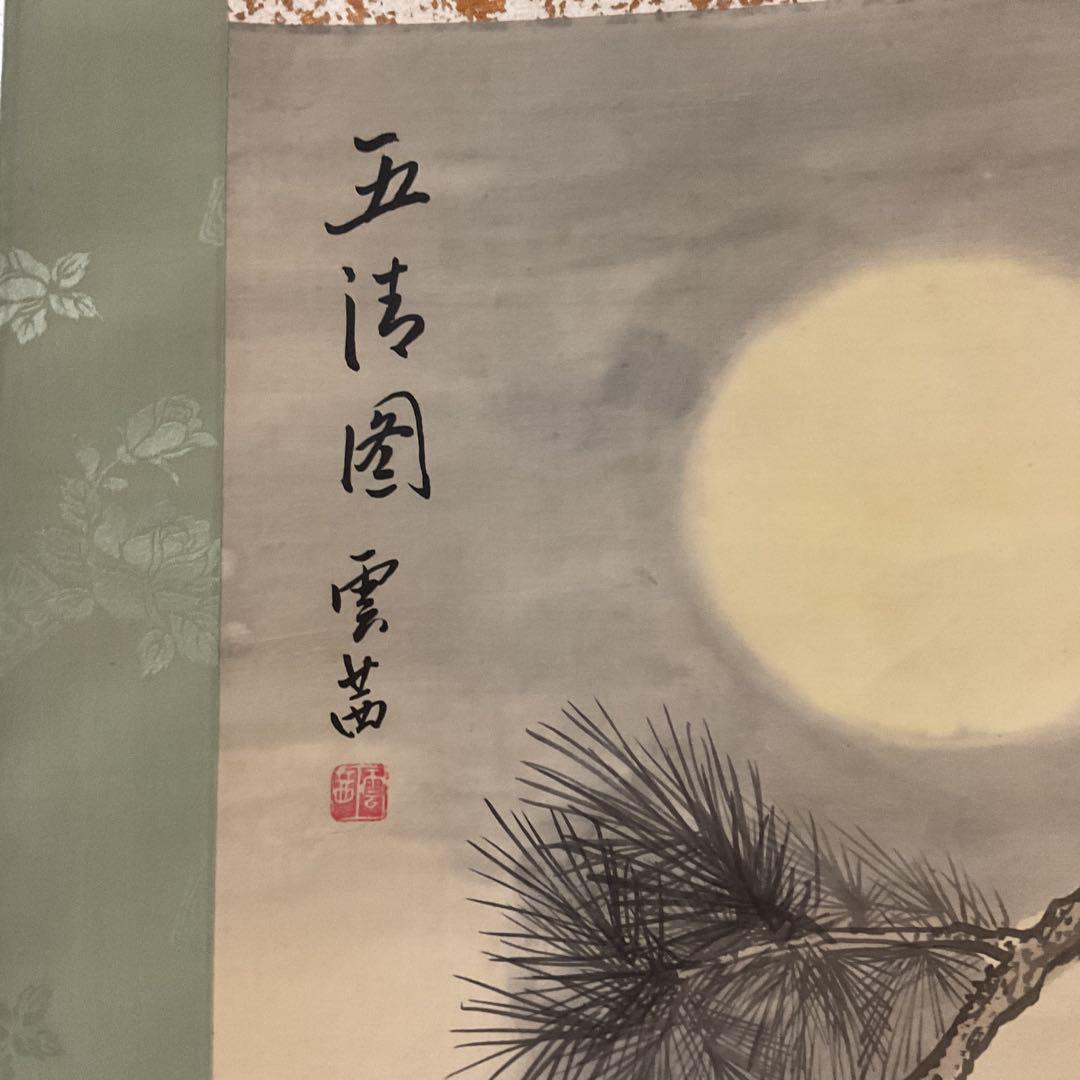 五清图 雲茜
雲茜